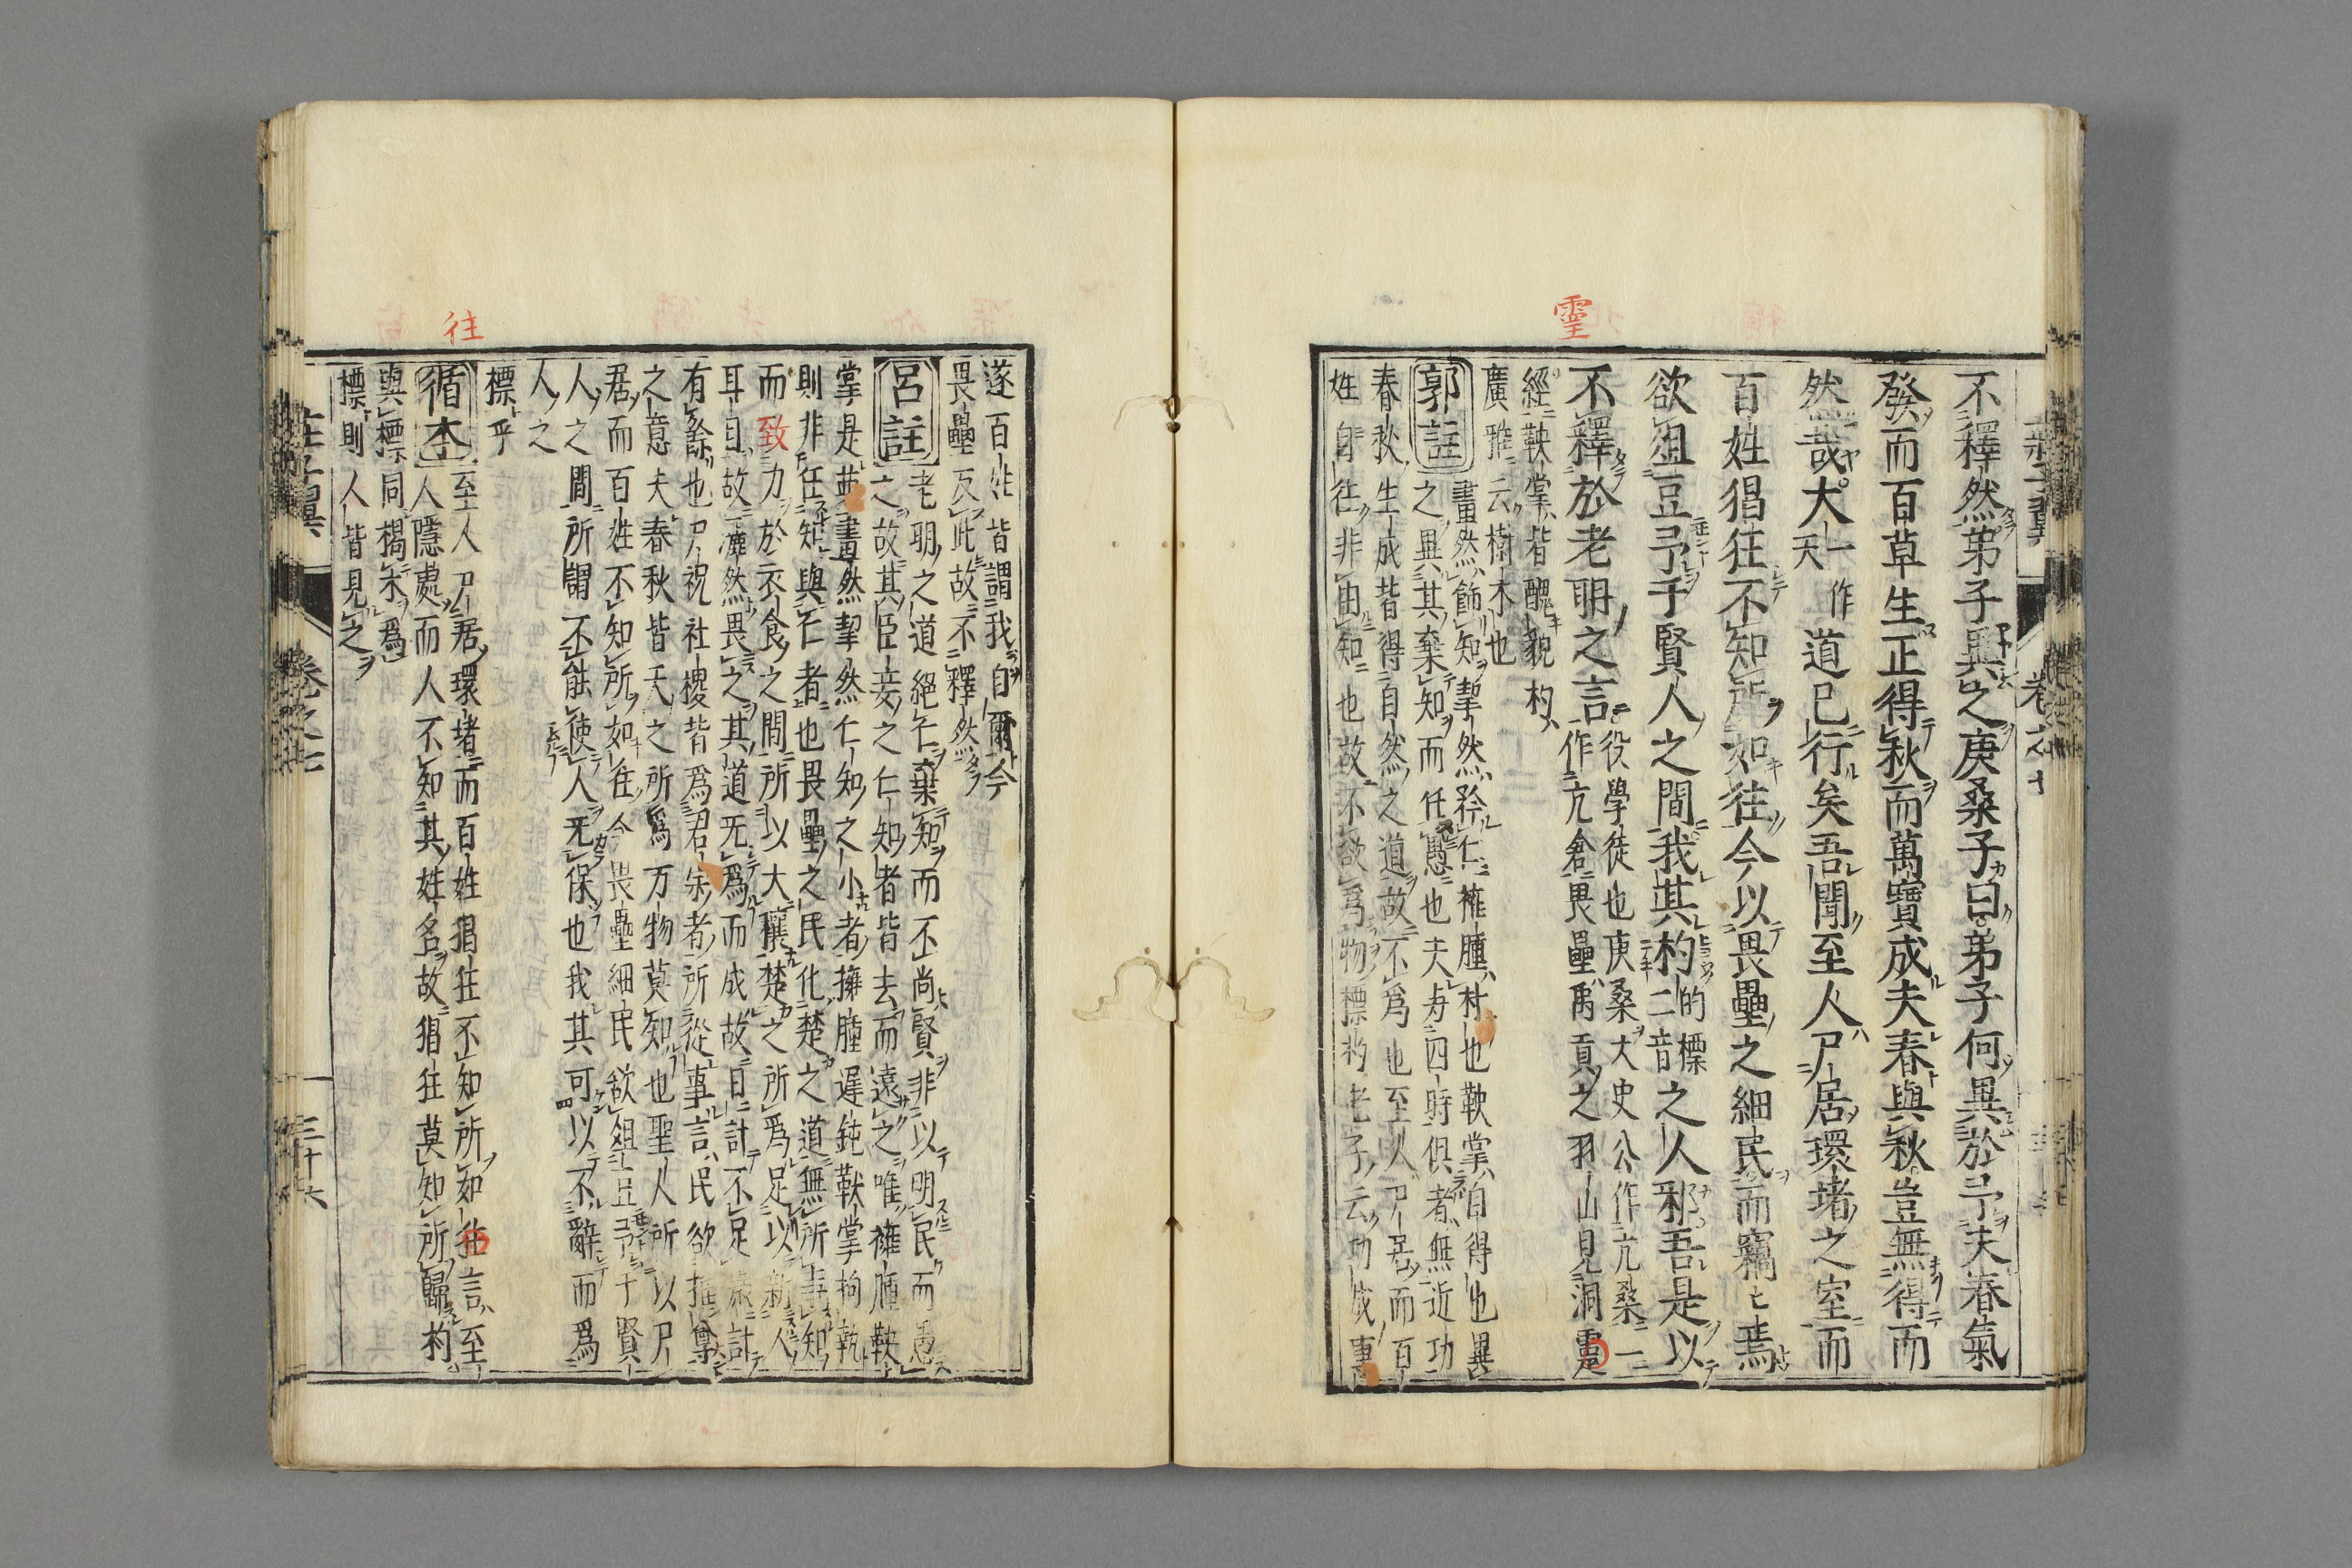 不釋然弟子異之庚桑子曰弟子何異於予夫春氣
發而百草生正得秋而萬寶成夫春與秋豈無得而
然哉大一作天道已行矣吾聞至人尸居環堵之室而
百姓猖狂不知所如往今以畏壘之細民而竊〻焉
欲俎豆予于賢人之間我其杓的標二音之人邪吾是以
不釋於老聃之言役學徒也庚桑大史公作亢桑一
作亢倉畏壘禹貢之羽山見洞霊
經鞅掌皆醜貌杓
廣雅云樹木也
郭註
畫然飾知挈然矜仁擁腫朴也鞅掌自得也異
之異其棄知而任愚也夫与四時俱者無近功
春秋生成皆得自然之道故不爲也至人尸居而百
姓自往非由知也故不欲爲物標杓老子云功成事
遂百姓皆謂我自爾今
畏壘反此故不釋然
呂註
老聃之道絕仁棄知而不尚賢非以明民而愚
之故其臣妾之仁知者皆去而遠之唯擁腫鞅
掌是與畫然挈然仁知之小者擁腫遲鈍鞅掌拘執
則非任知與仁者也畏壘之民化楚之道無所事知
而致力於衣食之間所以大穰楚之所爲足以新人
耳目故洒然畏之其道无爲而成故日計不足歲計
有餘也尸祝社稷皆爲君宗者所從事言民欲推尊
之意夫春秋皆天之所爲万物莫知也聖人所以尸
君而百姓不知所如往今畏壘細民欲俎豆予于賢
人之間所謂不能使人无保也我其可以不辭而爲
人之
標乎
循本
至人尸居環堵而百姓猖狂不知所如往言至
人隱處而人不知其姓名故猖狂莫知所歸杓
與標同揭木爲
標則人皆見之
莊子翼
卷之七
三十六
往
霊